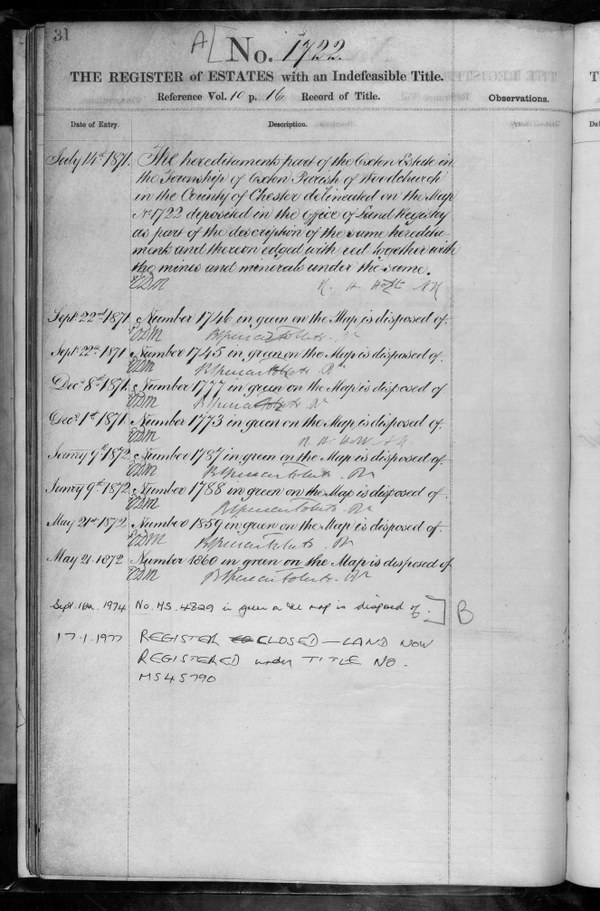 31
A[ No. 1722.
THE REGISTER of ESTATES with an Indefeasible Title.
Reference Vol. 10 p. 16 Record of Title.
Observations.
Date of Entry.
Description.
July 14th 1871. The hereditaments part of the Oxton Estate in
the Township of Oxton Parish of Woodchurch
in the County of Chester delineated on the Map
No 1722 deposited in the Office of Land Registry
as part of the description of the same heredita-
ments and thereon edged with red together with
the mines and minerals under the same.
Sept. 22nd 1871. Number 1746 in green on the Map is disposed of.
Sept. 22nd 1871 Number 1745 in green on the Map is disposed of.
Decr 8th 1871. Number 1777 in green on the Map is disposed of
Decr 1st 1871. Number 1773 in green on the Map is disposed of.
Janry 9th 1872. Number 1787 in green on the Map is disposed of.
Janry 9th 1872. Number 1788 in green on the Map is disposed of.
May 21st 1872. Number 1859 in green on the Map is disposed of.
May 21. 1872. Number 1860 in green on the Map is disposed of.
Sept. 16th. 1974 No. MS. 4829 in green on the map is disposed of. ] B
17.1.1977 REGISTER CLOSED — LAND NOW
REGISTERED under TITLE NO.
MS45790